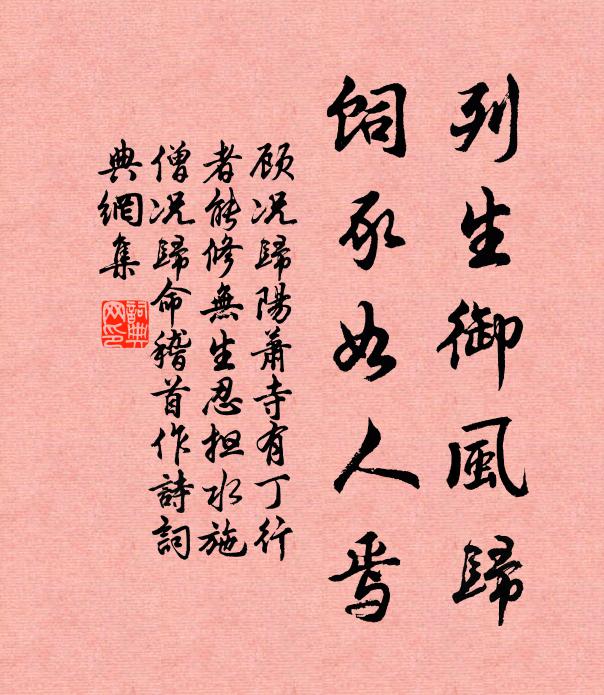 列生御風歸
飼豕如人焉
顾况歸陽蕭寺有丁行
者能修無生忍担水施
僧况歸命稽首作詩詞
典網集
詞典
网印